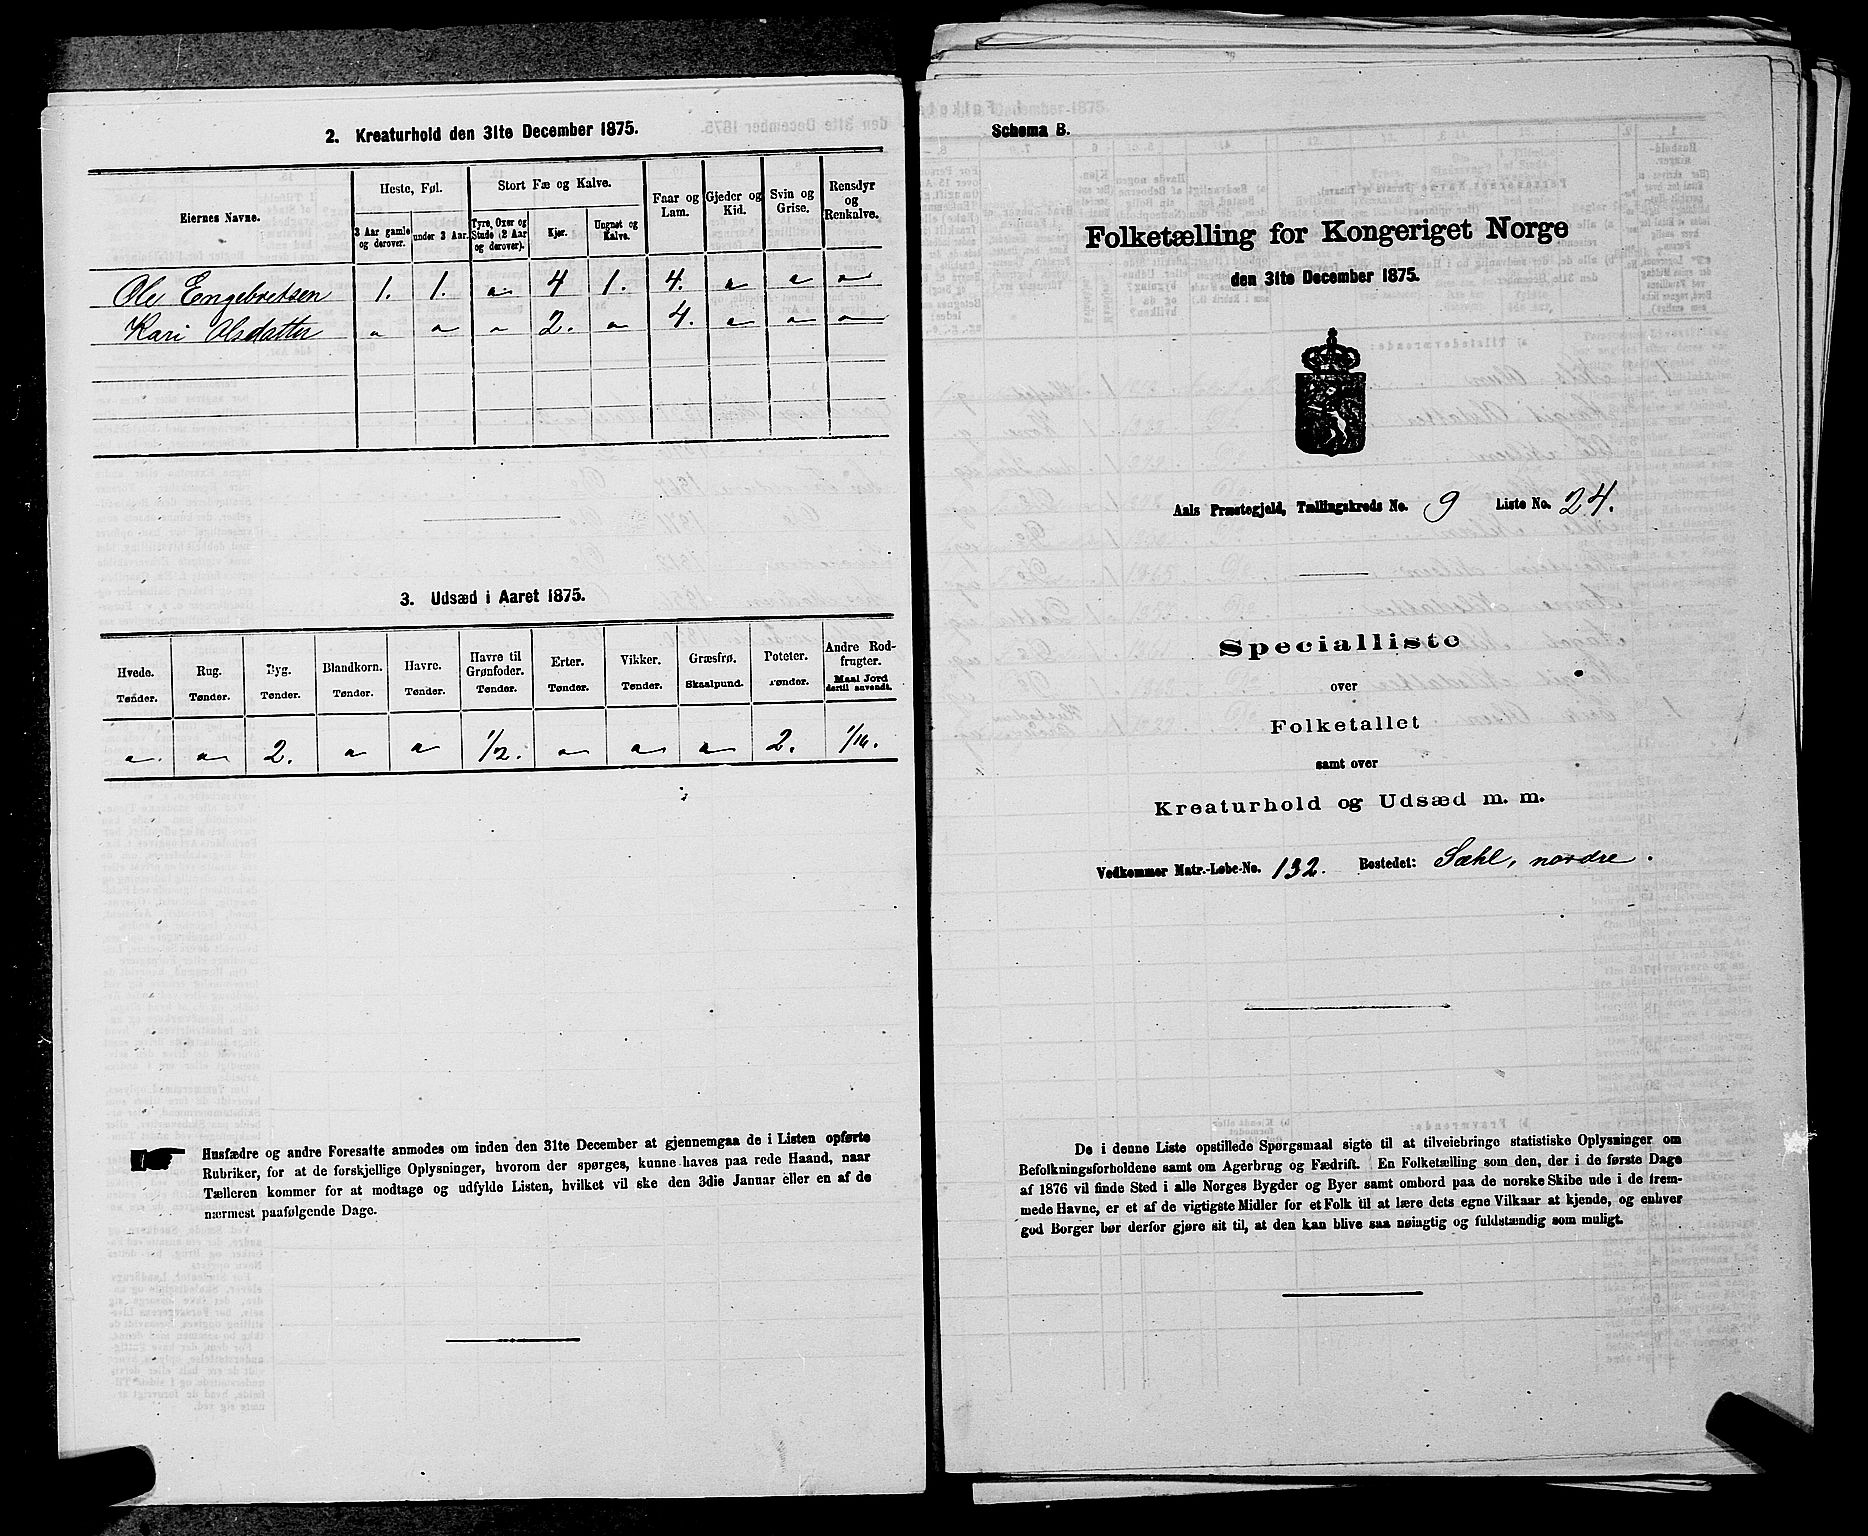 2. Kreaturhold den 31te December 1875.
Eiernes Navne.
Heste, Føl.
Stort Fæ og Kalve.
Faar og Lam.
Gjeder og Kid.
Svin og Grise.
Rensdyr og Renkalve.
3 Aar gamle og derover.
under 3 Aar.
Tyre, Oxer og Stude (2 Aar og derover).
Kjør.
Ungnøt og Kalve.
Ole Engebretsen 1. 1. „ 4 1. 4. „ „ „
Kari Olsdatter „ „ „ 2. „ 4. „ „ „
3. Udsæd i Aaret 1875.
Hvede. Rug. Byg. Blandkorn. Havre. Havre til Grønfoder. Erter. Vikker. Græsfrø. Poteter. Andre Rodfrugter.
Tønder. Tønder. Tønder. Tønder. Tønder. Tønder. Tønder. Tønder. Skaalpund. Tønder. Maal Jord dertil anvendt.
„ „ 2. „ „ 1/2. „ „ „ 2. 1/16.
Husfædre og andre Foresatte anmodes om inden den 31te December at gjennemgaa de i Listen opførte
Rubriker, for at de forskjellige Oplysninger, hvorom der spørges, kunne haves paa rede Haand, naar
Tælleren kommer for at modtage og udfylde Listen, hvilket vil ske den 3die Januar eller en af de
nærmest paafølgende Dage.
Schema B.
Folketælling for Kongeriget Norge
den 31te December 1875.
Aals Præstegjeld, Tællingskreds No. 9 Liste No. 24.
Specialliste
over
Folketallet
samt over
Kreaturhold og Udsæd m. m.
Vedkommer Matr.-Løbe-No. 132. Bostedet: Sæhl, nordre.
De i denne Liste opstillede Spørgsmaal sigte til at tilveiebringe statistiske Oplysninger om
Befolkningsforholdene samt om Agerbrug og Fædrift. En Folketælling som den, der i de første Dage
af 1876 vil finde Sted i alle Norges Bygder og Byer samt ombord paa de norske Skibe ude i de frem-
mede Havne, er et af de vigtigste Midler for et Folk til at lære dets egne Vilkaar at kjende, og enhver
god Borger bør derfor gjøre sit til, at den kan blive saa nøiagtig og fuldstændig som muligt.